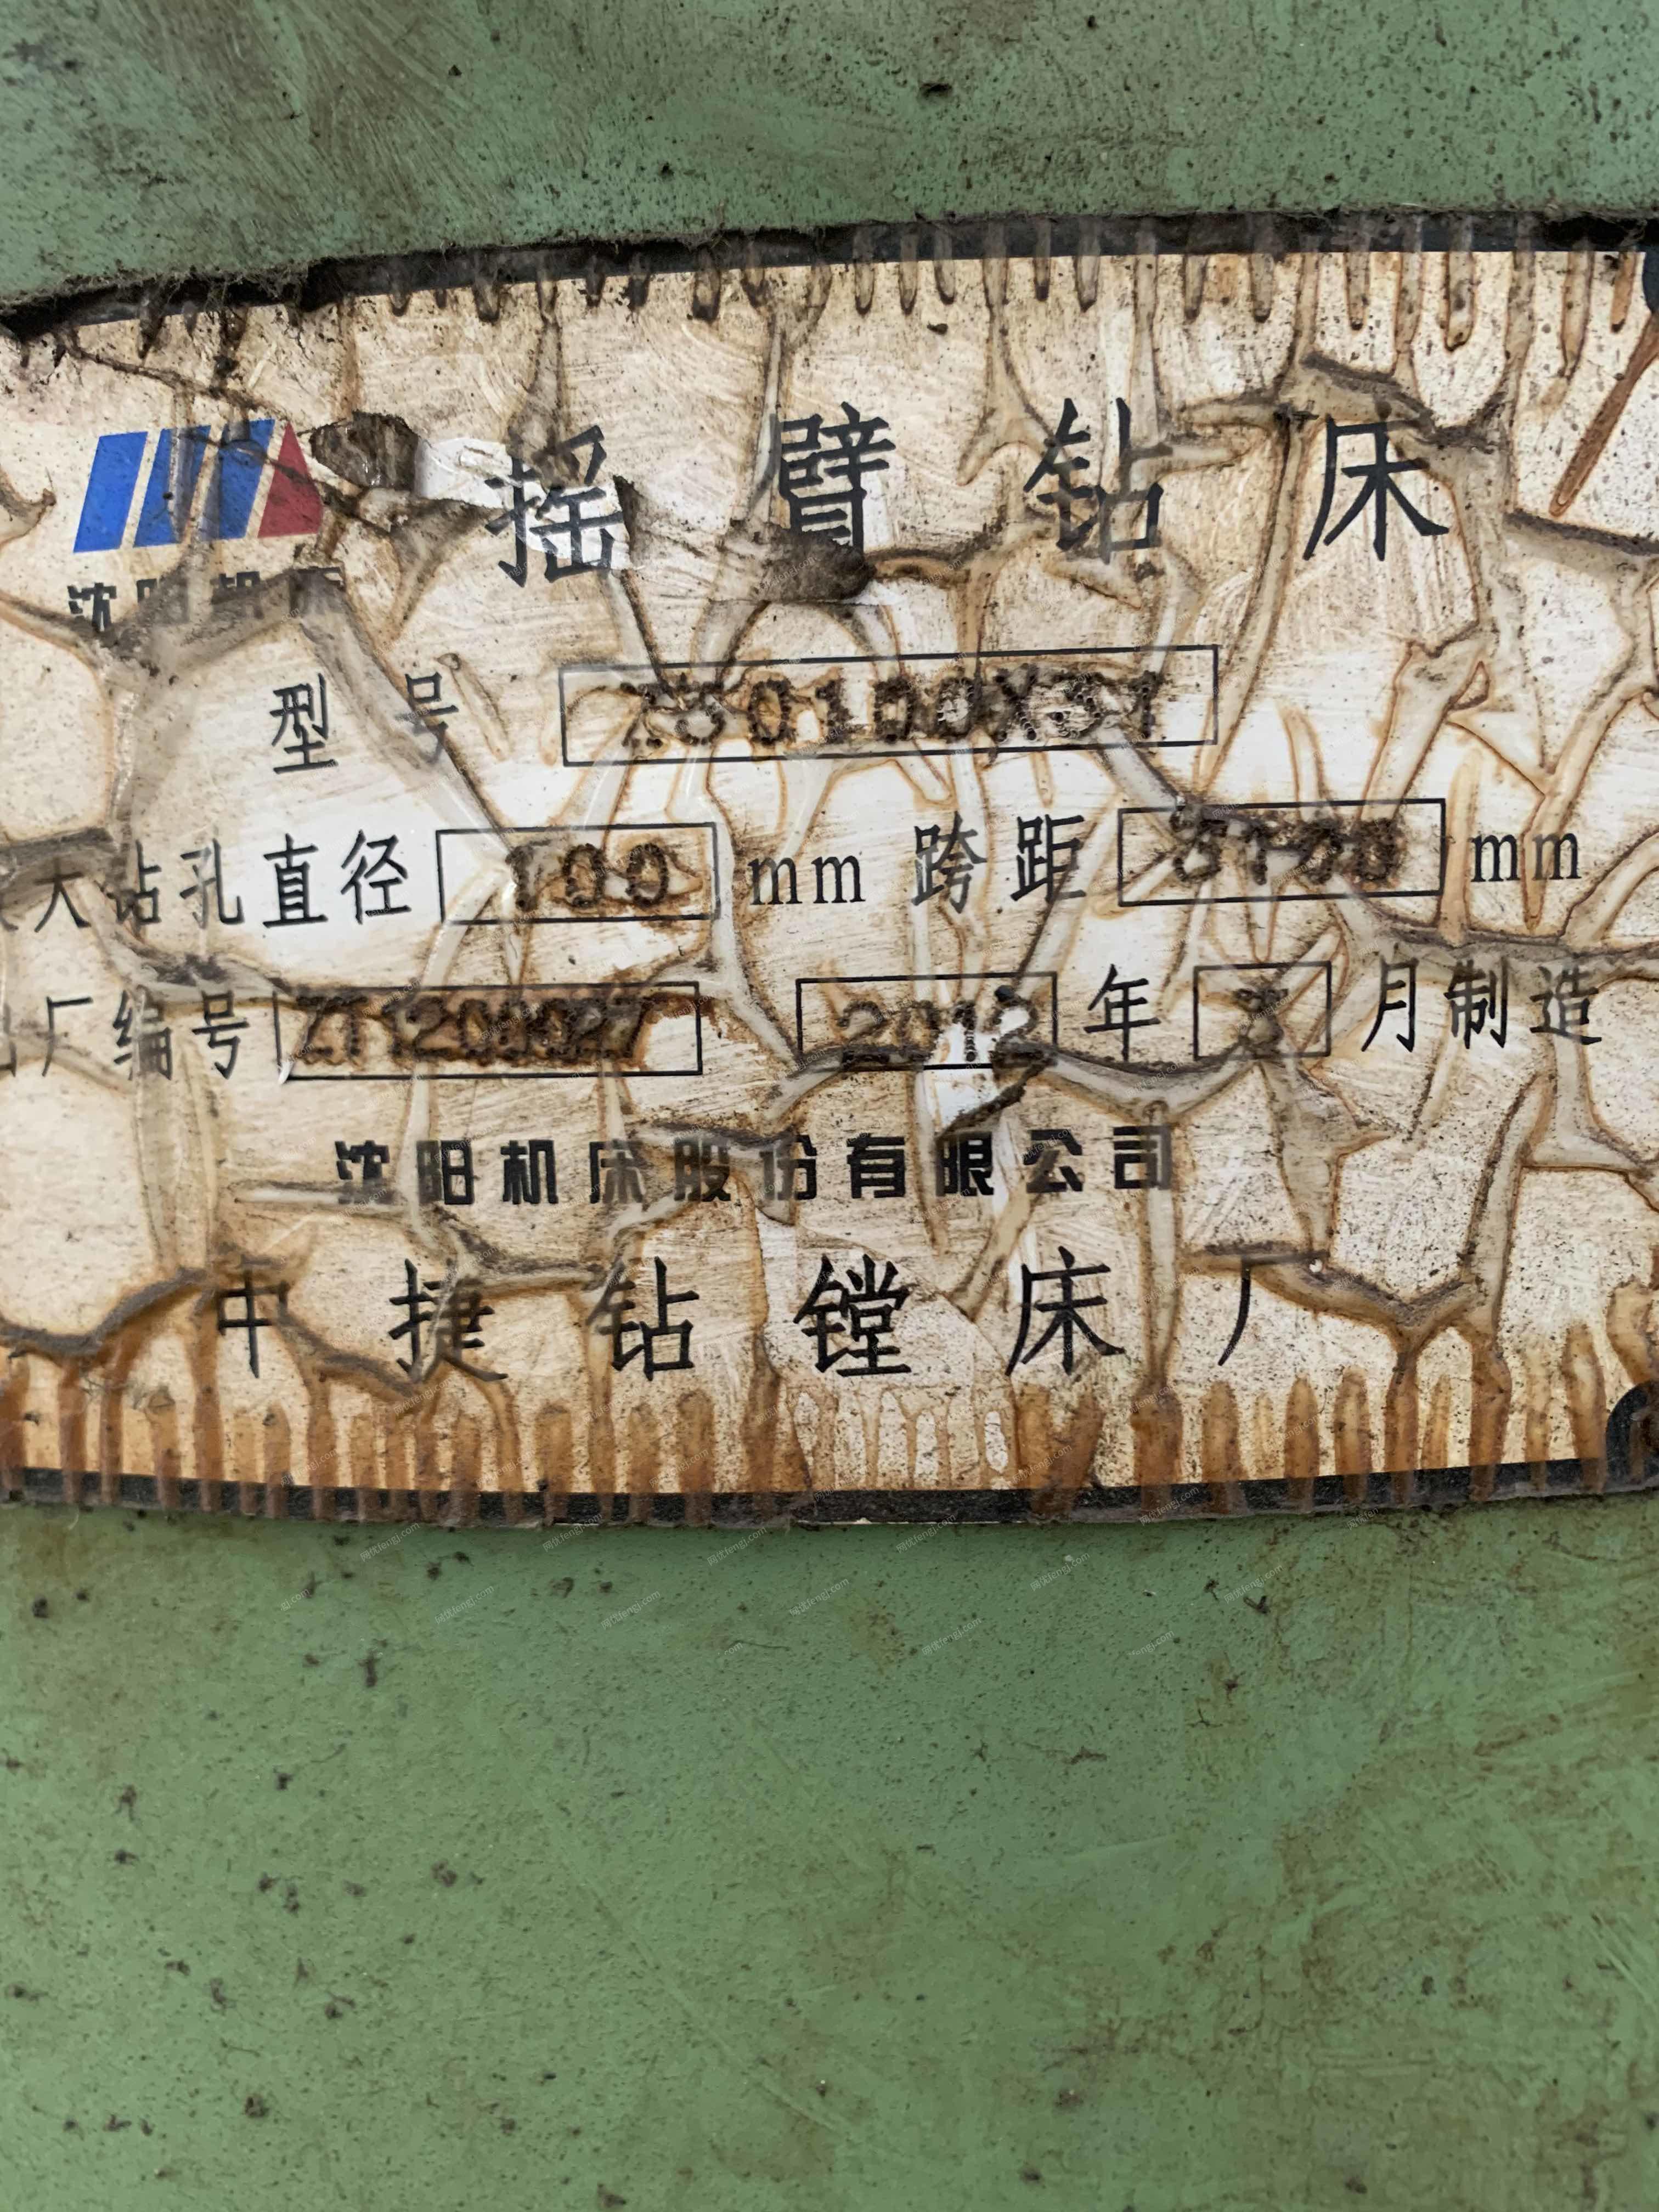 摇臂钻床
沈阳机床
型号 Z30100X31
大钻孔直径 100 mm 跨距 3150 mm
厂编号 ZT1200027 2012 年 月制造
沈阳机床股份有限公司
中捷钻镗床厂